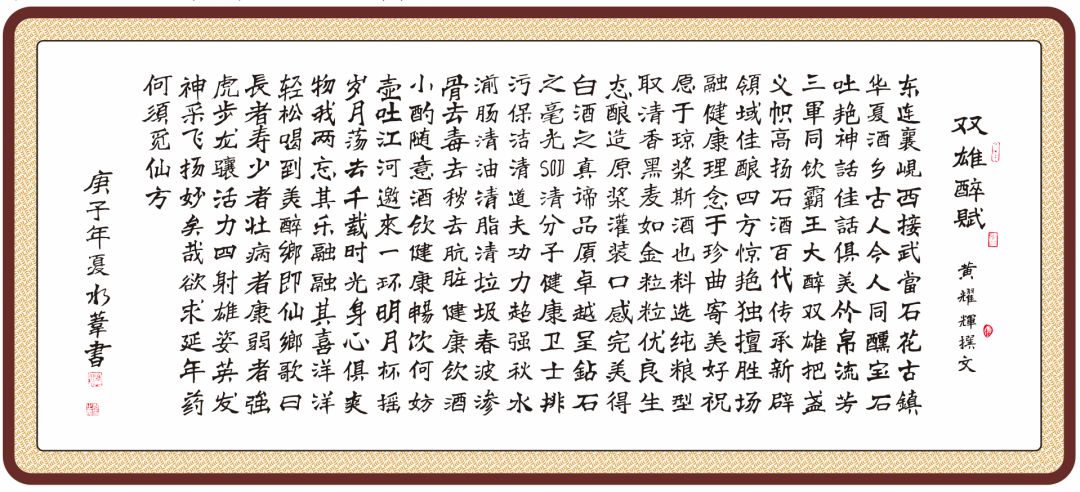 双雄醉賦
黄耀輝撰文
东连襄峴西接武當石花古鎮
华夏酒乡古人今人同醺宝石
吐艳神話佳話俱美竹帛流芳
三軍同饮霸王大醉双雄把盏
义帜高扬石酒百代传承新辟
領域佳酿四方惊艳独擅胜场
融健康理念于珍曲寄美好祝
愿于琼浆斯酒也料选纯粮型
取清香黑麦如金粒粒优良生
态酿造原浆灌装口感完美得
白酒之真谛品质卓越呈鉆石
之毫光SOD清分子健康卫士排
污保洁清道夫功力超强秋水
湔肠清油清脂清垃圾春波渗
骨去毒去秽去肮脏健康饮酒
小酌随意酒饮健康暢饮何妨
壶吐江河邀來一环明月杯摇
岁月荡去千载时光身心俱爽
物我两忘其乐融融其喜洋洋
轻松喝到美醉鄉即仙鄉歌曰
長者寿少者壮病者康弱者強
虎步龙骧活力四射雄姿英发
神采飞扬妙矣哉欲求延年药
何須觅仙方
庚子年夏水葦書